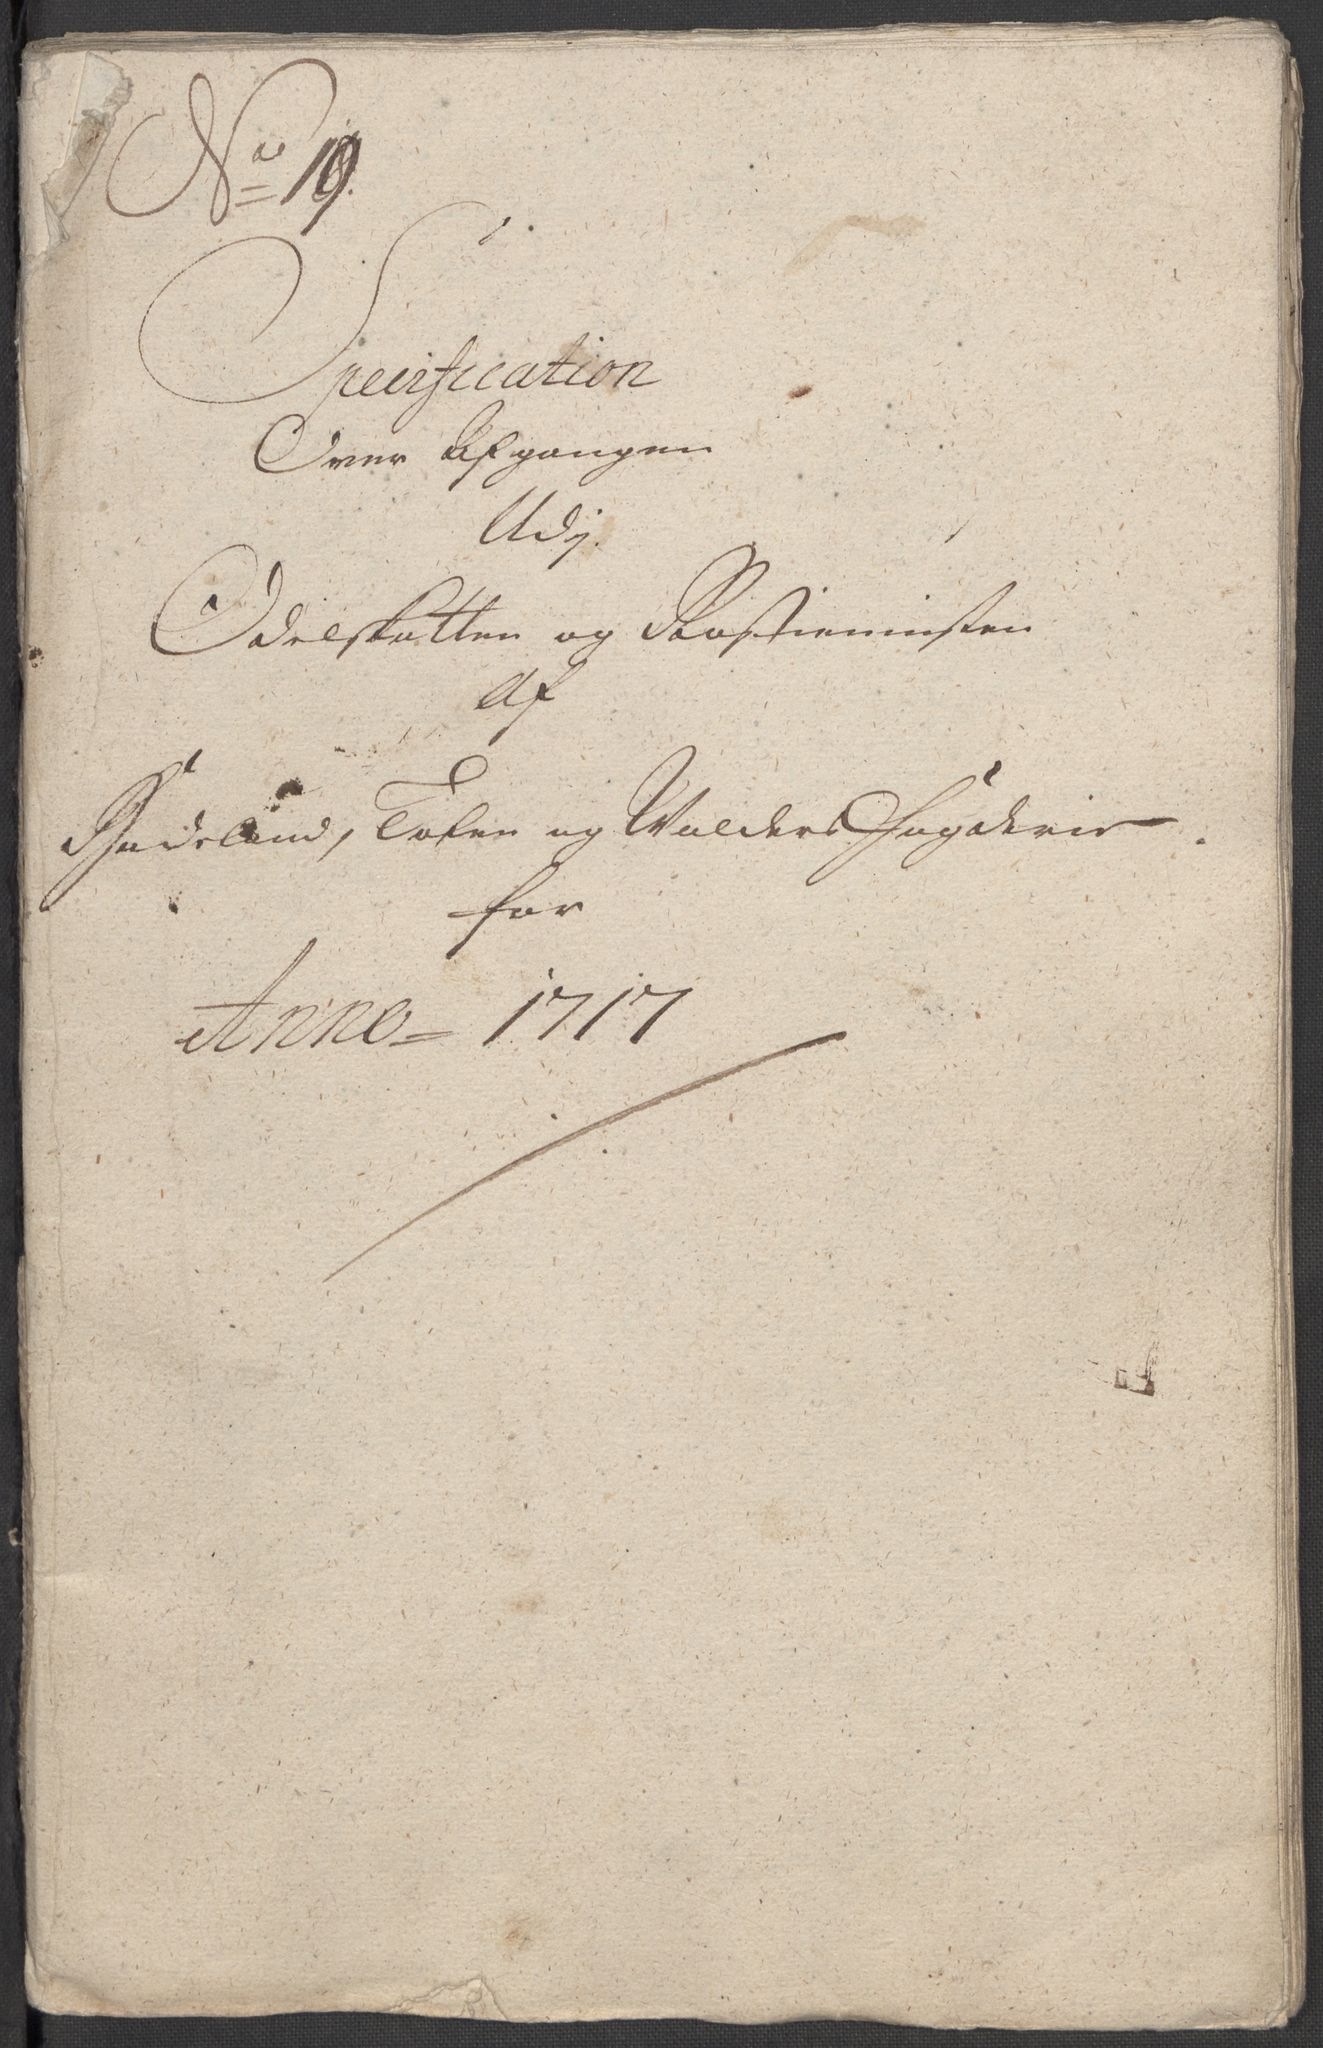 No 19.
Specification
Over Afgangen
Udj
Odelskatten og Rostiennisten
Af
Hadeland, Toten og Walders Fogderie.
for
Anno 1717